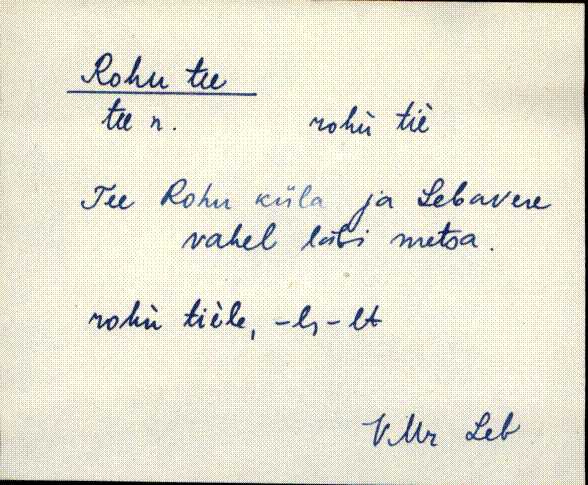 Rohu tee
tee n. rohu̇ tiè
Tee Rohu küla ja Lebavere
vahel läbi metsa.
rohu̇ tièle, -l, -lt
VMr Leb